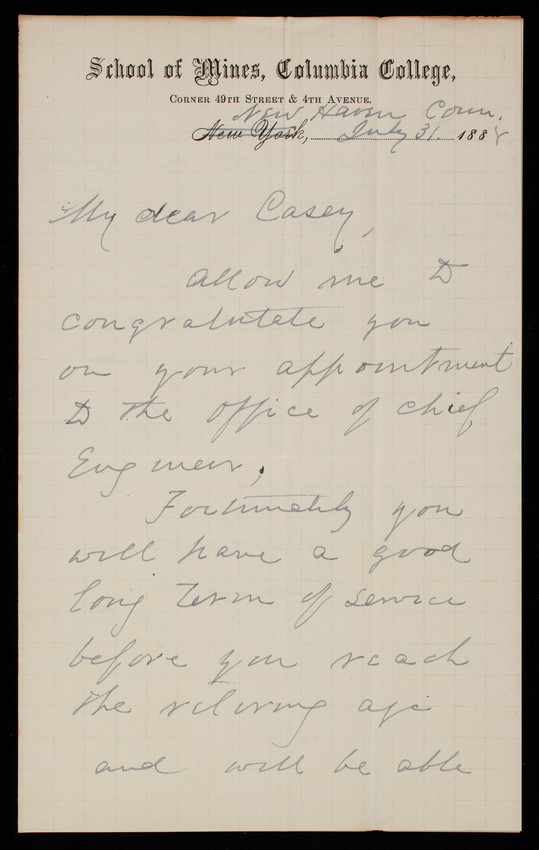 School of Mines, Columbia College,
Corner 49th Street & 4th Avenue.
New Haven Conn.
New York, July 31. 1888
My dear Casey,
Allow me to
congratulate you
on your appointment
to the office of chief
Engineer.
Fortunately you
will have a good
long term of service
before you reach
the retiring age
and will be able